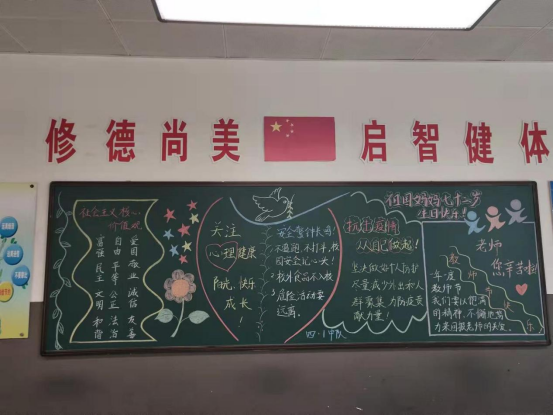 修德尚美 启智健体
社会主义核心
价值观
富强 民主 文明 和谐
自由 平等 公正 法治
爱国 敬业 诚信 友善
关注
心理健康
阳光、快乐
成长
！
安全警钟长鸣！
1. 不追逐、不打半，校
园安全记心头！
2. 校外食品不入校
3. 危险活动要
远离。
四·1中队
抗击疫情
从自己做起！
坚决做好个人防护
尽量减少外出和人
群聚集，为防疫贡
献力量！
祖国妈妈七十二岁
生日快乐！
老师
您辛苦啦！
教师节快乐
一年一度
教师节
我们要以饱满